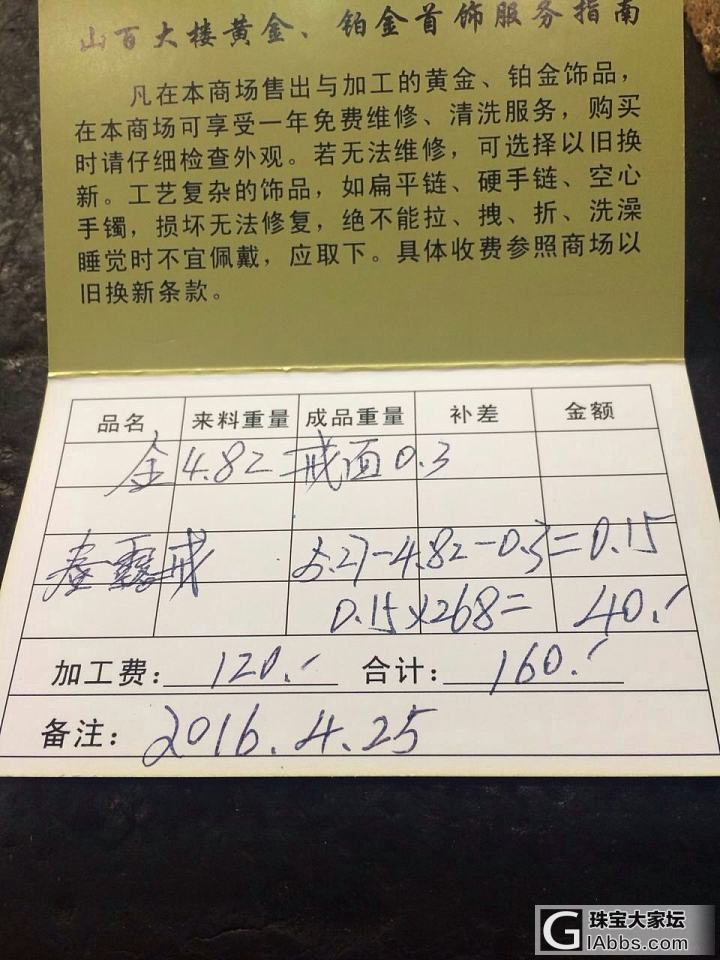 山百大楼黄金、铂金首饰服务指南
凡在本商场售出与加工的黄金、铂金饰品，
在本商场可享受一年免费维修、清洗服务，购买
时请仔细检查外观。若无法维修，可选择以旧换
新。工艺复杂的饰品，如扁平链、硬手链、空心
手镯，损坏无法修复，绝不能拉、拽、折、洗澡
睡觉时不宜佩戴，应取下。具体收费参照商场以
旧换新条款。
品名 来料重量 成品重量 补差 金额
金 4.82 戒面0.3
戒 5.27-4.82-0.3=0.15
0.15×268= 40.
加工费：120. 合计：160.
备注：2016.4.25
珠宝大家坛
GIAbbs.com